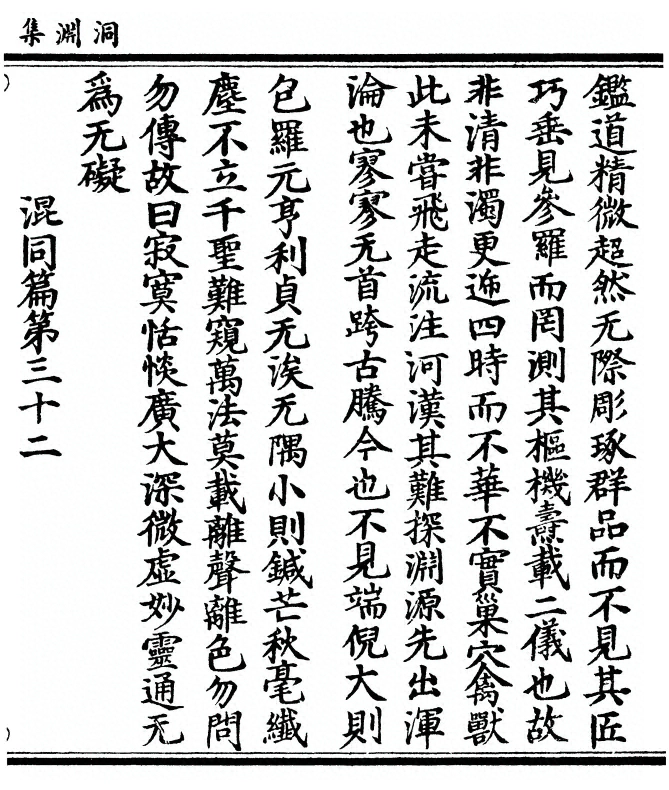 洞淵集
鑑道精微超然无際彫琢群品而不見其匠
巧垂見參羅而罔測其樞機燾載二儀也故
非清非濁更迊四時而不華不實巢穴禽獸
此未嘗飛走流注河漢其難探淵源先出渾
淪也寥寥无首跨古騰今也不見端倪大則
包羅元亨利貞无涘无隅小則鍼芒秋毫纖
塵不立千聖難窺萬法莫載離聲離色勿問
勿傳故曰寂寞恬惔廣大深微虛妙靈通无
為无礙
混同篇第三十二